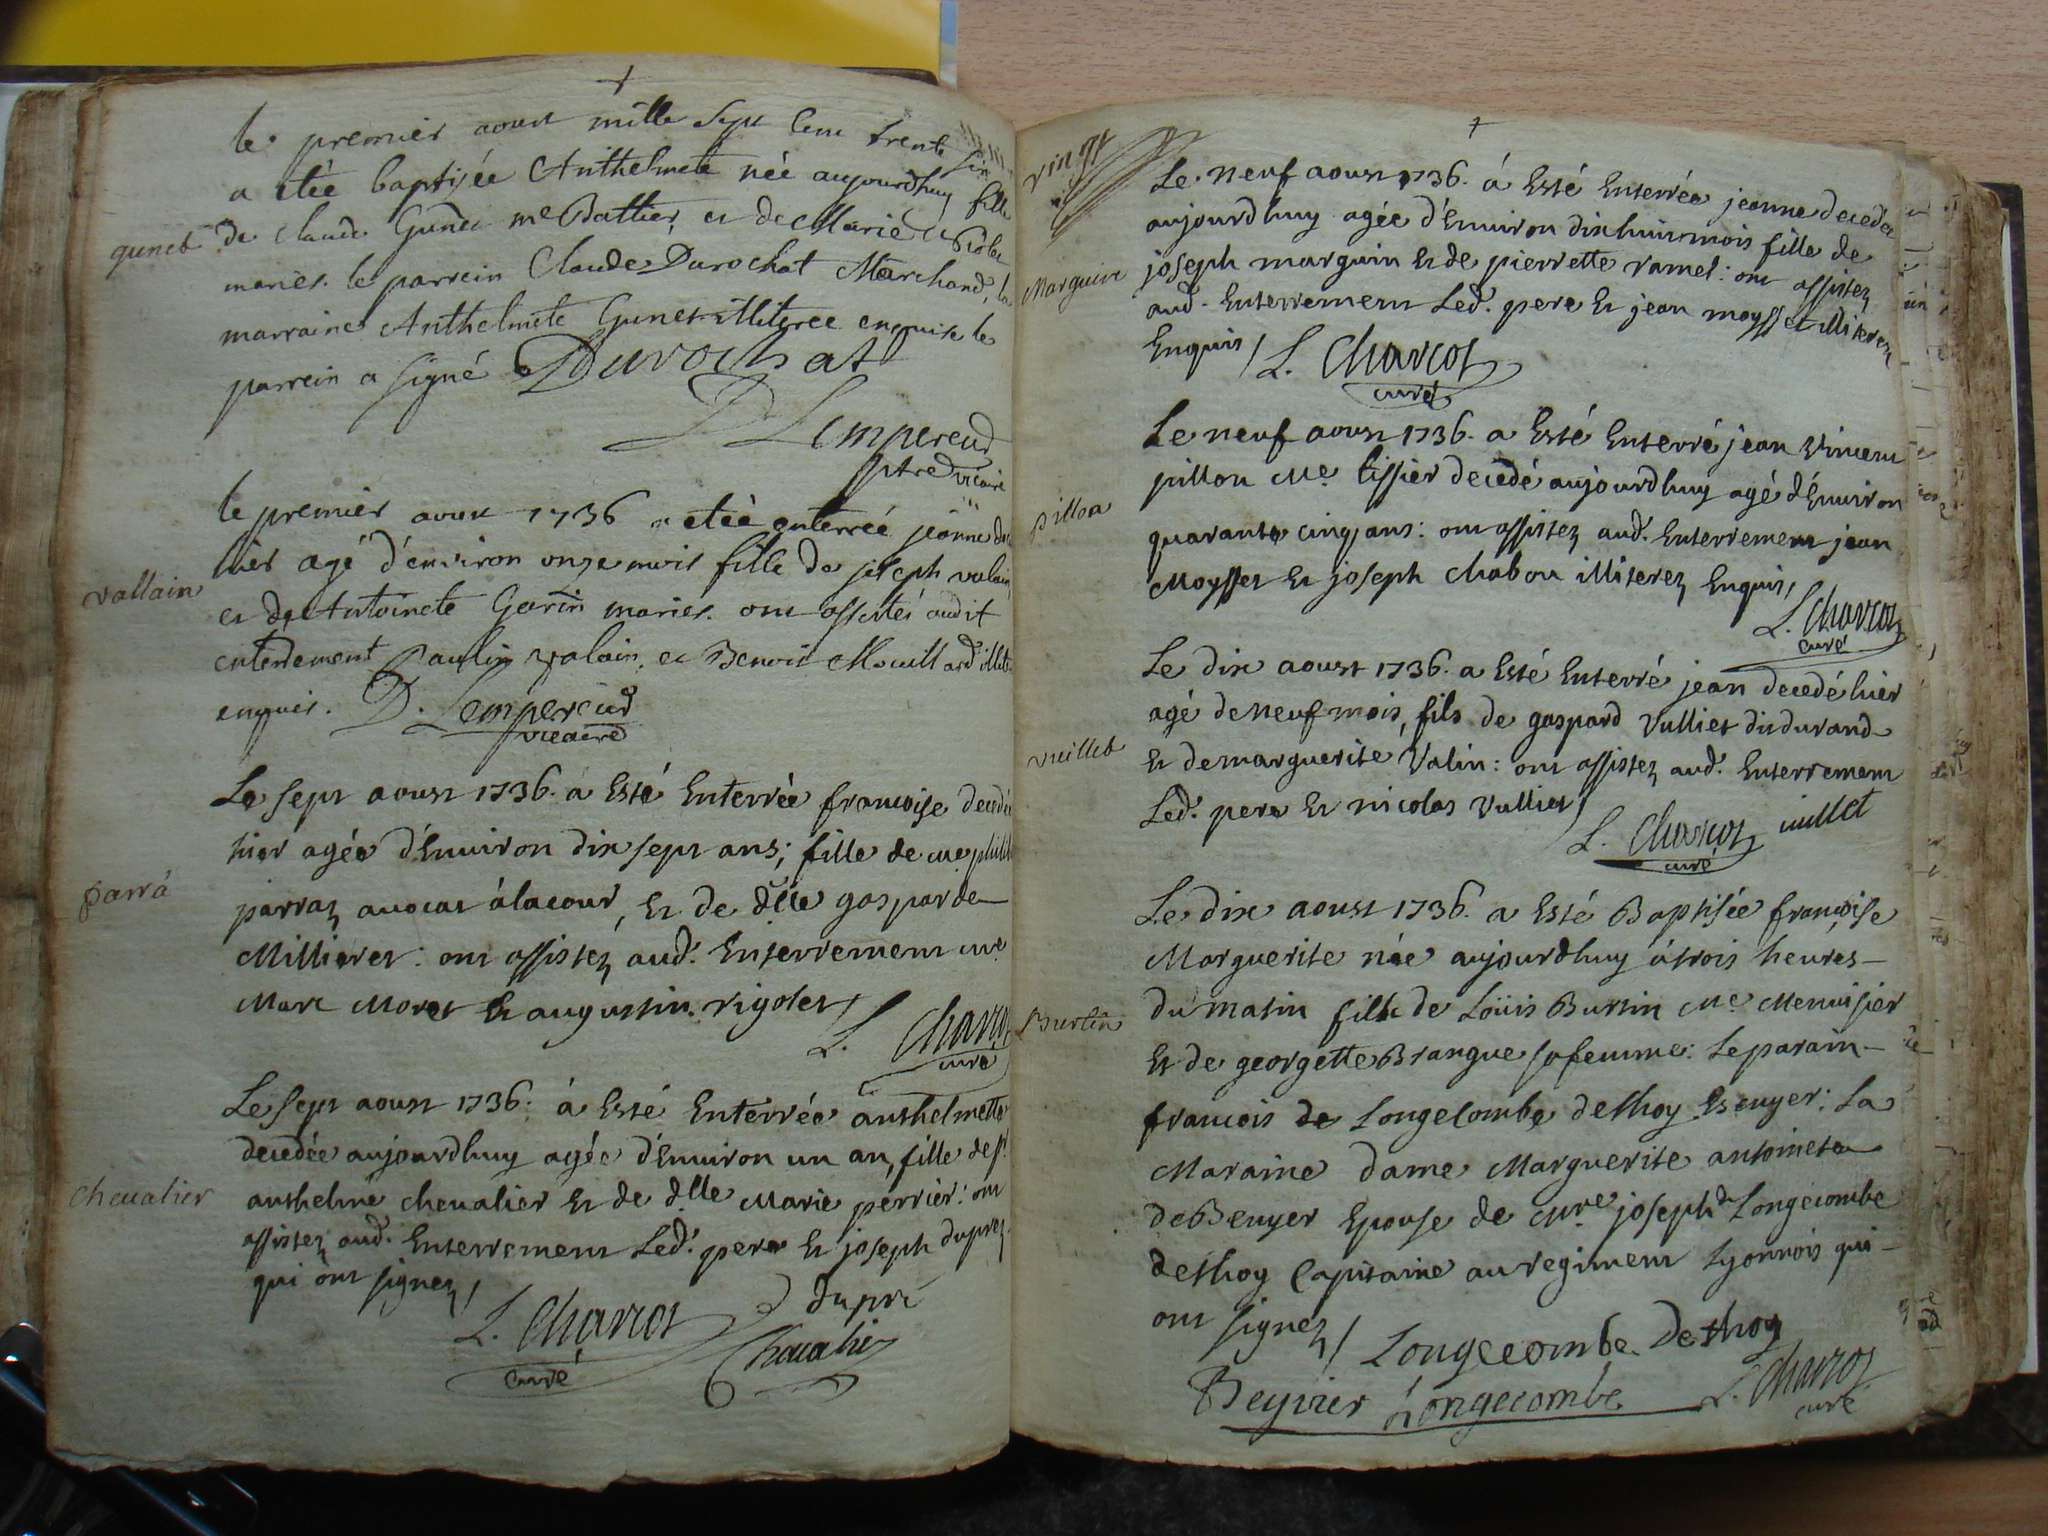 le premier aoust mille sept cent trente six
a etée baptisée Anthelmete née aujourdhuy fille
gunet
de claude Gunet me Battier, et de Marie
mariés. le parrein Claude Durochat Marchand, la
marraine Anthelmete Gunet illiteree enquise le
parrein a signé Durochat
D Lempereur
ptre vicaire
le premier aoust 1736 a etéé enterréé jeanne
hier agé d'environ onze mois fille de joseph valain
vallain
et de Antoinete Garin mariés. ont assistés audit
enterrement Paulin valain, et Benoit Mouillard
enquis. D. Lempereur
vicaire
Le sept aoust 1736. á Esté Enterrée francoise decedée
hier agée d'Enuiron dix sept ans; fille de me
parra
parraz auocat á la cour, Et de dlle gasparde
Millieret: ont assistez aud. Enterrement me
Marc Moret Et augustin rigolet /
L. Charcot
curé
Le sept aoust 1736. á Esté Enterrée anthelmette
decedée aujourdhuy agée d'Enuiron un an, fille de sr
cheualier
anthelme cheualier Et de dlle Marie perrier: ont
assistez aud. Enterrement Led. pere Et joseph duprez
qui ont signez /
L. Charcot
curé
dupré
Cheualier
vingt
Le neuf aoust 1736. á Esté Enterrée jeanne decedée
aujourdhuy agée d'Enuiron dixhuit mois fille de
Marguin
joseph marguin Et de pierrette ramel: ont assistez
aud. Enterrement Led. pere Et jean moysset illiterez
Enquis / L. Charcot
curé
Le neuf aoust 1736. a Esté Enterré jean Vincent
pillon
pillon Me. tissier decedé aujourdhuy agé d'Enuiron
quarante cinq ans: ont assistez aud. Enterrement jean
Moysset Et joseph chabou illiterez Enquis /
L. Charcot
curé
Le dix aoust 1736. a Esté Enterré jean decedé hier
agé de neuf mois, fils de gaspard Vulliet dit durand
vuillet
Et de marguerite Valin: ont assistez aud. Enterrement
Led. pere Et nicolas Vulliet /
L. Charcot vuillet
curé
Le dix aoust 1736. a Esté Baptisée francoise
Marguerite née aujourdhuy á trois heures
Burtin
du matin fille de Loüis Burtin Me Menuisier
Et de georgette Brangue sa femme: Le parain
francois de Longecombe dethoy Escuyer: La
Maraine dame Marguerite antoinete
de Beuyer Epouse de Mre joseph de Longecombe
dethoy Capitaine au regiment Lyonnois qui
ont signez / Longecombe Dethoy
Longecombe L. Charcot
curé